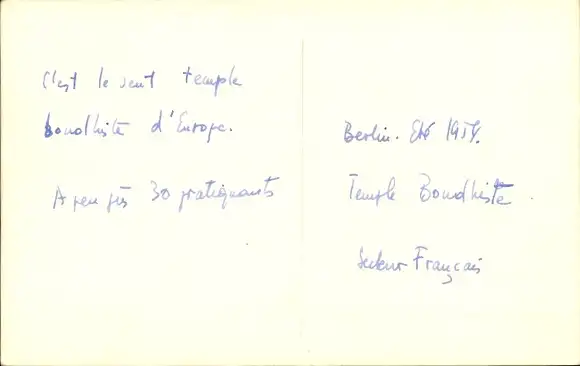 C'est le seul temple
boudhiste d'Europe.
A peu près 30 pratiquants
Berlin. Eté
Temple Boudhiste
Secteur Français